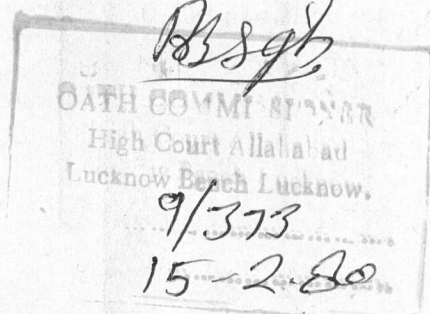 OATH COMMISSIONER
High Court Allahabad
Lucknow Bench Lucknow.
9/373
15-2.80